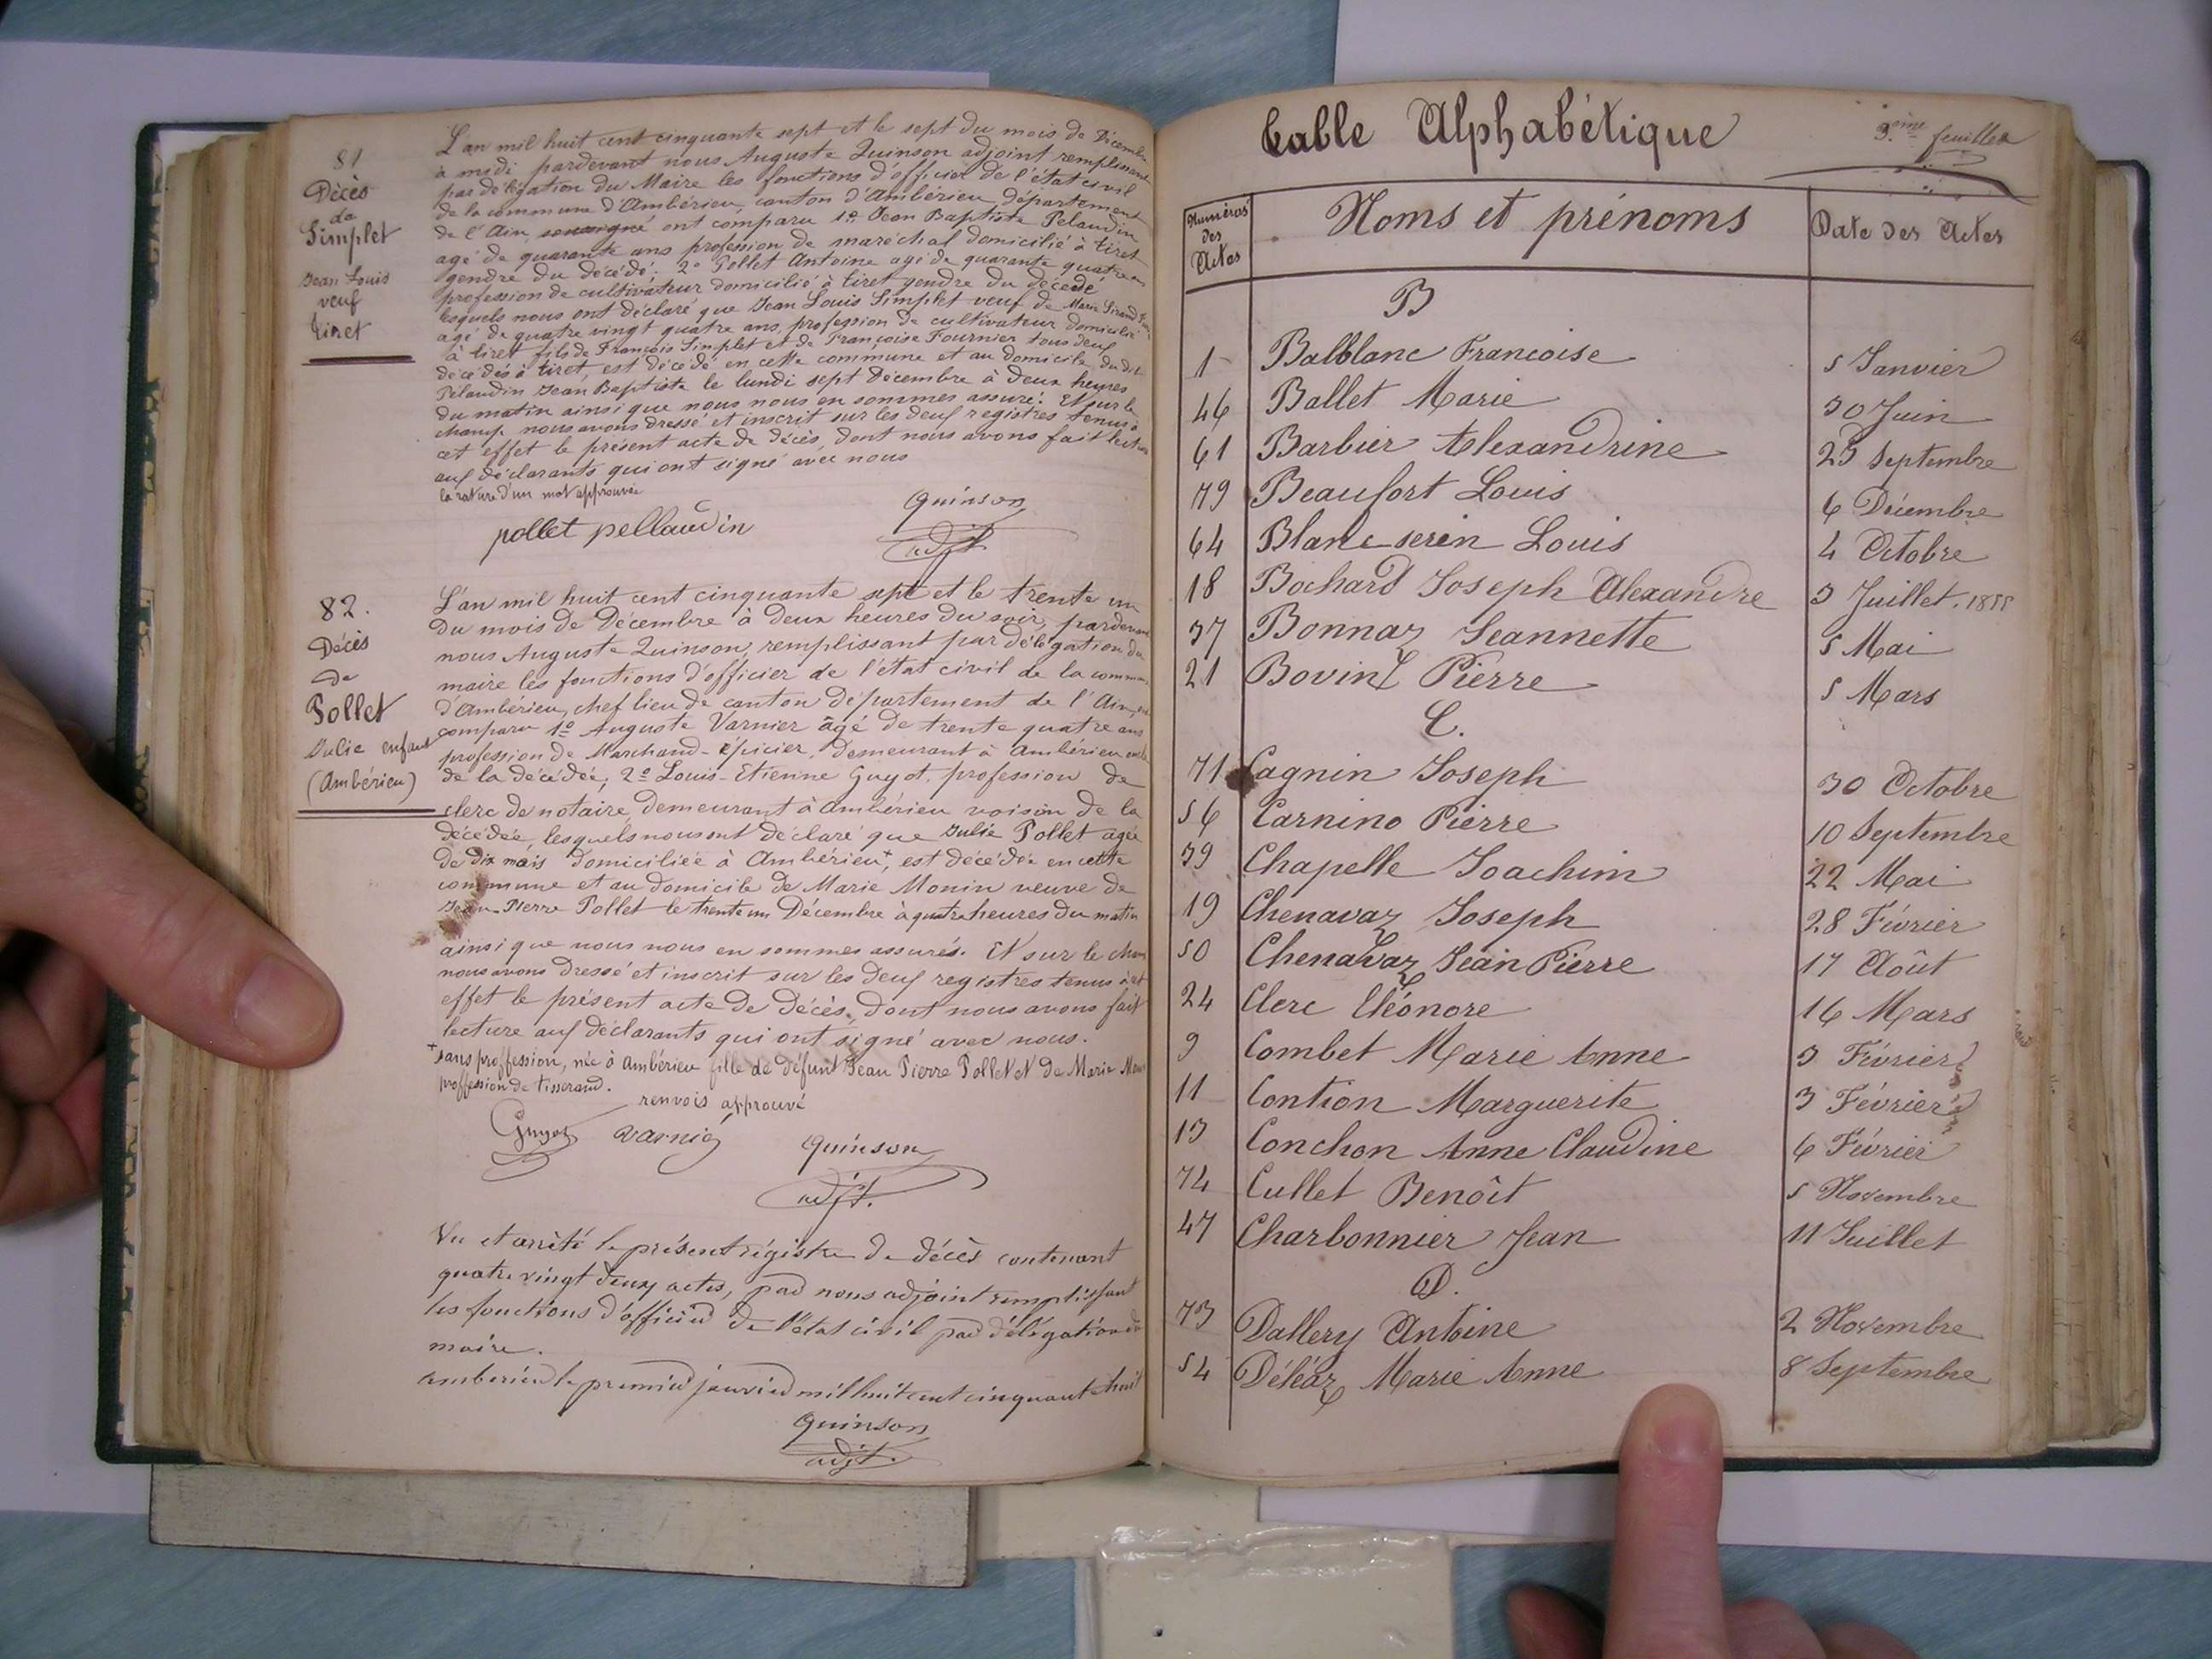 81
Décès
de
Simplet
Jean Louis
veuf
tiret
L'an mil huit cent cinquante sept et le sept du mois de Décembre
à midi pardevant nous Auguste Quinson adjoint remplissant
par délégation du Maire les fonctions d'officier de l'état civil
de la commune d'Ambérieu, canton d'Ambérieu, département
de l'Ain, soussigné ont comparu 1º Jean Baptiste Pelaudin
agé de quarante ans profession de maréchal domicilié à tiret
gendre du décédé; 2º Pollet Antoine agé de quarante quatre ans
profession de cultivateur domicilié à tiret gendre du décédé
lesquels nous ont déclaré que Jean Louis Simplet veuf de Marie
agé de quatre vingt quatre ans, profession de cultivateur domicilié
à tiret fils de François Simplet et de Françoise Fournier tous deux
décédés à tiret, est décédé en cette commune et au domicile du dit
Pelaudin Jean Baptiste le lundi sept Décembre à deux heures
du matin ainsi que nous nous en sommes assuré. Et sur le
champ nous avons dressé et inscrit sur les deux registres tenus à
cet effet le présent acte de décès, dont nous avons fait lecture
aux déclarants qui ont signé avec nous
la rature d'un mot approuvée
pollet pellaudin
Quinson
adjt
82.
Décès
de
Pollet
Julie enfant
(Ambérieu)
L'an mil huit cent cinquante sept et le trente un
du mois de Décembre à deux heures du soir, pardevant
nous Auguste Quinson, remplissant par délégation du
maire les fonctions d'officier de l'état civil de la commune
d'Ambérieu, chef lieu de canton département de l'Ain, ont
comparu 1º Auguste Varnier âgé de trente quatre ans
profession de Marchand-épicier, demeurant à Ambérieu oncle
de la décédée; 2º Louis-Etienne Guyot, profession de
clerc de notaire, demeurant à ambérieu voisin de la
décédée, lesquels nous ont déclaré que Julie Pollet agée
de dix mois domiciliée à Ambérieu+, est décédée en cette
commune et au domicile de Marie Monin veuve de
Jean-Pierre Pollet le trente un Décembre à quatre heures du matin
ainsi que nous nous en sommes assurés. Et sur le champ
nous avons dressé et inscrit sur les deux registres tenus à cet
effet le présent acte de décès, dont nous avons fait
lecture aux déclarants qui ont signé avec nous.
+sans proffession, née à Ambérieu fille de défunt Jean Pierre Pollet et de Marie Monin
proffession de tisserand.
renvois approuvé
Guyot varnier
Quinson
adjt.
Vu et arrêté le présent régistre de décès contenant
quatre vingt deux actes, par nous adjoint remplissant
les fonctions d'officier de l'état civil par délégation du
maire.
Ambérieu le premier janvier mil huit cent cinquante huit
Quinson
adjt.
Table Alphabétique
3.eme feuillet
Numéros des Actes
Noms et prénoms
Date des Actes
B
1 Balblanc Francoise 5 Janvier
46 Ballet Marie 30 Juin
61 Barbier Alexandrine 23 Septembre
79 Beaufort Louis 6 Décembre
64 Blanc serin Louis 4 Octobre
18 Bochard Joseph Alexandre 3 Juillet. 1855
37 Bonnaz Jeannette 5 Mai
21 Bovint Pierre 5 Mars
C.
71 Cagnin Joseph 30 Octobre
56 Carnino Pierre 10 Septembre
39 Chapelle Joachim 22 Mai
19 Chenavaz Joseph 28 Février
50 Chenavaz Jean Pierre 17 Août
24 Clerc Eléonore 16 Mars
9 Combet Marie Anne 3 Février
11 Contion Marguerite 3 Février
13 Conchon Anne Claudine 6 Février
74 Cullet Benôit 5 Novembre
47 Charbonnier Jean 11 Juillet
D.
73 Dallery Antoine 2 Novembre
54 Déléaz Marie Anne 8 Septembre